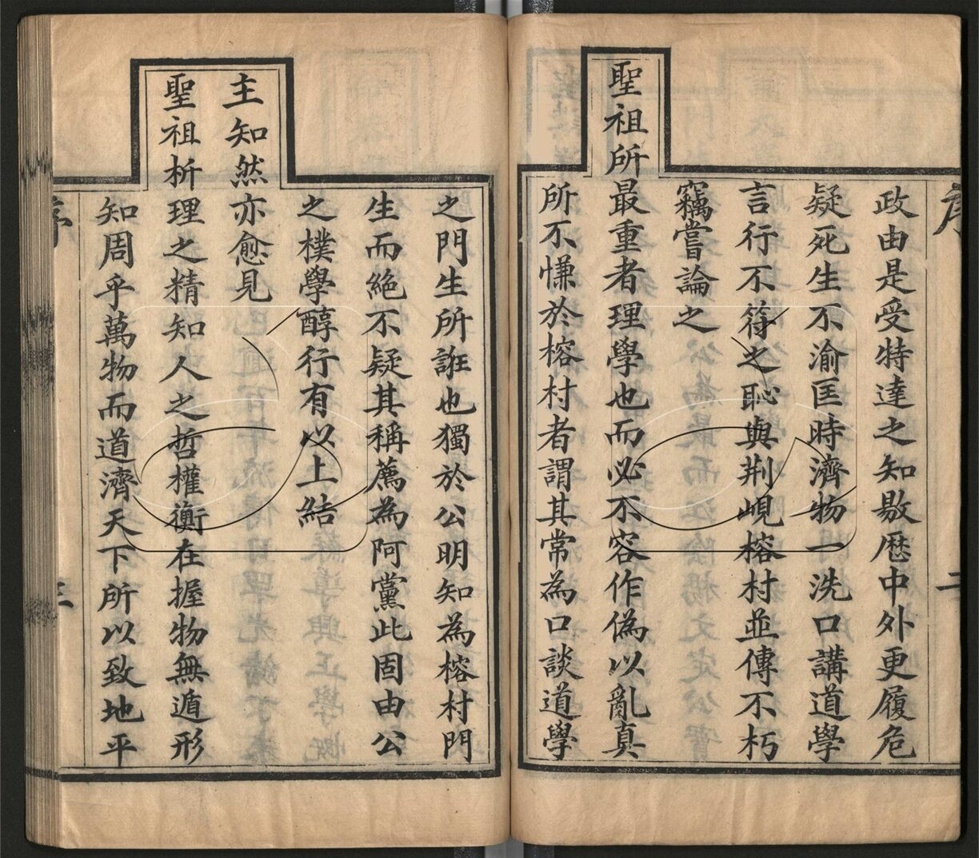 政由是受特達之知敭歴中外更履危
疑死生不渝匡時濟物一洗口講道學
言行不符之恥與荆峴榕村並傳不朽
竊嘗論之
聖祖所最重者理學也而必不容作偽以亂真
所不慊於榕村者謂其常為口談道學
之門生所誑也獨於公明知為榕村門
生而絕不疑其稱薦為阿黨此固由公
之樸學醇行有以上結
主知然亦愈見
聖祖析理之精知人之哲權衡在握物無遁形
知周乎萬物而道濟天下所以致地平